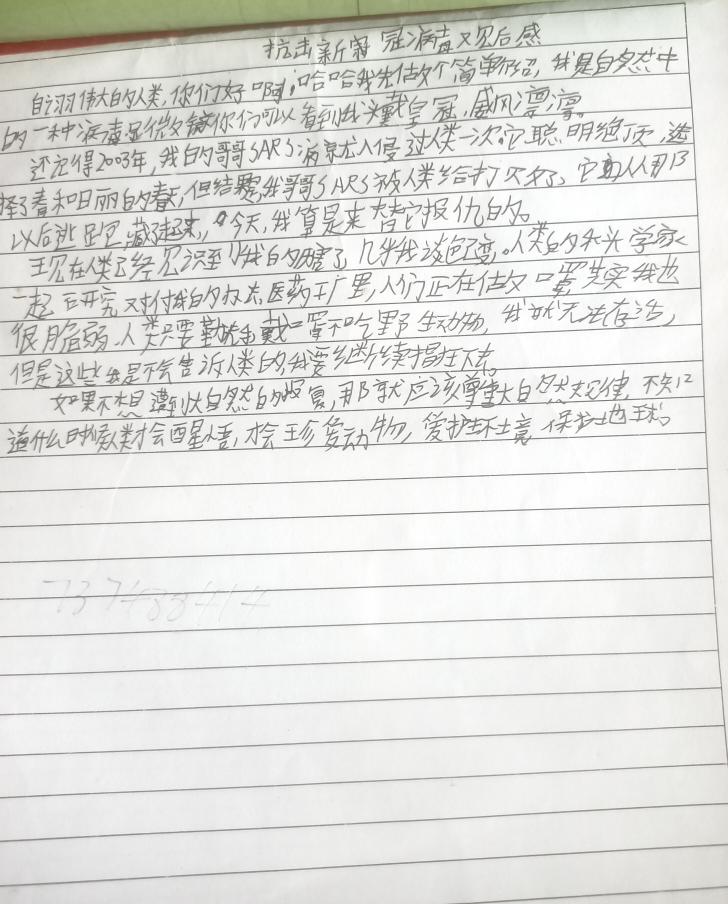 抗击新冠病毒观后感
自诩伟大的人类,你们好啊,哈哈我先做个简单介绍,我是自然中
的一种病毒显微镜你们可以看到我头戴皇冠,威风凛凛。
还记得2003年,我的哥哥SARS病就入侵过人类一次。它聪明绝顶,选
择了春和日丽的春天,但结果我哥哥SARS被人类给打败了,它从那
以后逃跑,藏起来,今天,我算是来替它报仇的。
现在人类已经见识到我的厉害了,几乎我谈色变。人类的科学家
一起在研究对付我的办法医药工厂里,人们正在做口罩其实我也
很脆弱,人类只要勤洗手戴口罩不吃野生动物,我就无法存活,
但是这些我是不会告诉人类的,我要继续猖狂下去。
如果不想遭到大自然的报复,那就应该尊重大自然规律,不知
道什么时候人类才会醒悟,才会珍爱动物,爱护环境,保护地球。
737488414